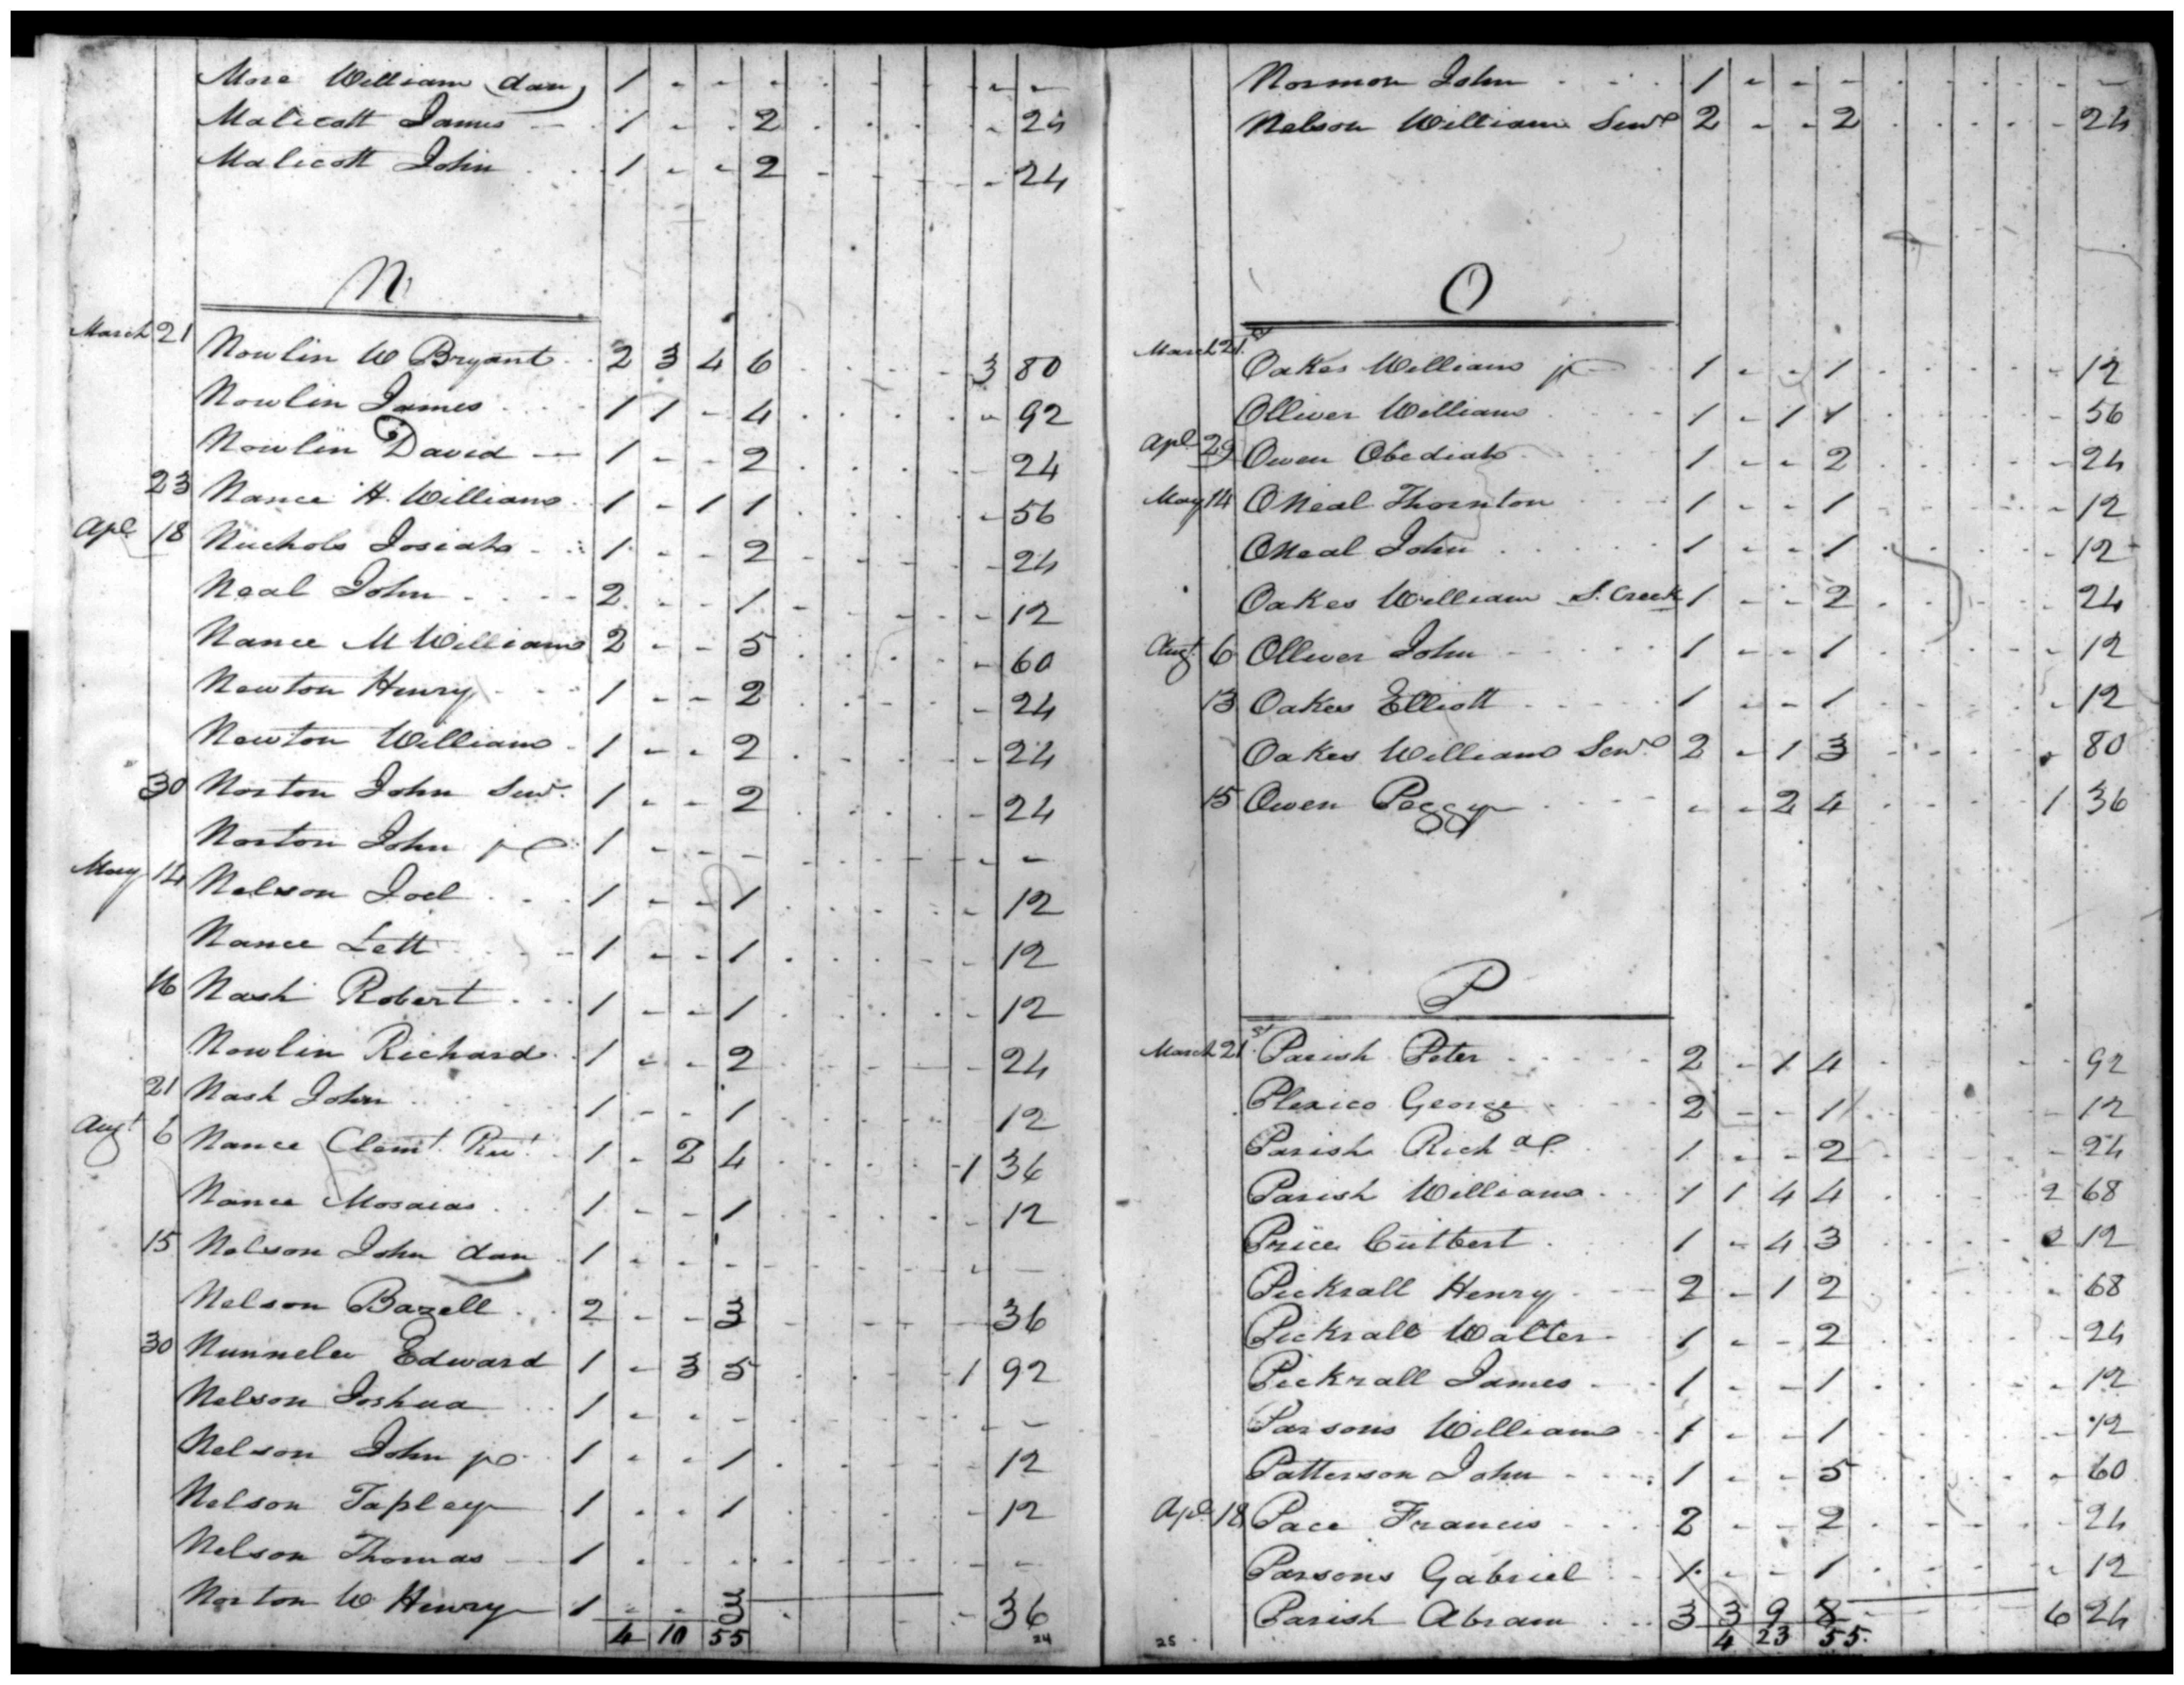 More William dan 1 - - - - -
Malicott James 1 - - 2 - 24
Malicott John 1 - - 2 - 24
N
March 21 Nowlin W Bryant 2 3 4 6 3 80
Nowlin James 1 1 - 4 - 92
Nowlin David 1 - - 2 - 24
23 Nance H. William 1 - 1 1 - 56
Apl 18 Nuchols Josiah 1 - - 2 - 24
Neal John 2 - - 1 - 12
Nance M William 2 - - 5 - 60
Newton Henry 1 - - 2 - 24
Newton William 1 - - 2 - 24
30 Norton John Senr. 1 - - 2 - 24
Norton John jr 1 - - - - -
May 14 Nelson Joel 1 - - 1 - 12
Nance Lett 1 - - 1 - 12
16 Nash Robert 1 - - 1 - 12
Nowlin Richard 1 - - 2 - 24
21 Nash John 1 - - 1 12
Augt 6 Nance Clemt. 1 - 2 4 1 36
Nance 1 - - 1 - 12
15 Nelson John dan 1 - - - - -
Nelson Bazell 2 - - 3 - 36
30 Nunnelee Edward 1 - 3 5 1 92
Nelson Joshua 1 - - - - -
Nelson John jr 1 - - 1 12
Nelson Tapley 1 - - 1 - 12
Nelson Thomas 1 - - - - -
Norton W Henry 1 - - 3 - 36
4 10 55
24
Normon John 1 - - - -
Nelson William Senr 2 - - 2 - 24
O
March 21st Oakes William jr 1 - - 1 - 12
Olliver William 1 - 1 1 - 56
Apl 29 Owen Obediah 1 - - 2 - 24
May 14 ONeal Thornton 1 - - 1 - 12
ONeal John 1 - - 1 - 12
Oakes William S. Creek 1 - - 2 - 24
Augt. 6 Olliver John 1 - - 1 - 12
13 Oakes Elliott 1 - - 1 - 12
Oakes William Senr 2 - 1 3 - 80
15 Owen Peggy - - 2 4 1 36
P
March 21st Parish Peter 2 - 1 4 - 92
Plexico George 2 - - 1 - 12
Parish Richd. 1 - - 2 - 24
Parish William 1 1 4 4 2 68
Price Cutbert 1 - 4 3 2 12
Pickrall Henry 2 - 1 2 - 68
Pickrall Walter 1 - - 2 - 24
Pickrall James 1 - - 1 - 12
Parsons William 1 - - 1 - 12
Patterson John 1 - - 5 - 60
Apl. 18 Pace Francis 2 - - 2 - 24
Parsons Gabriel 1 - - 1 - 12
Parish Abram 3 3 9 8 6 24
4 23 55
25